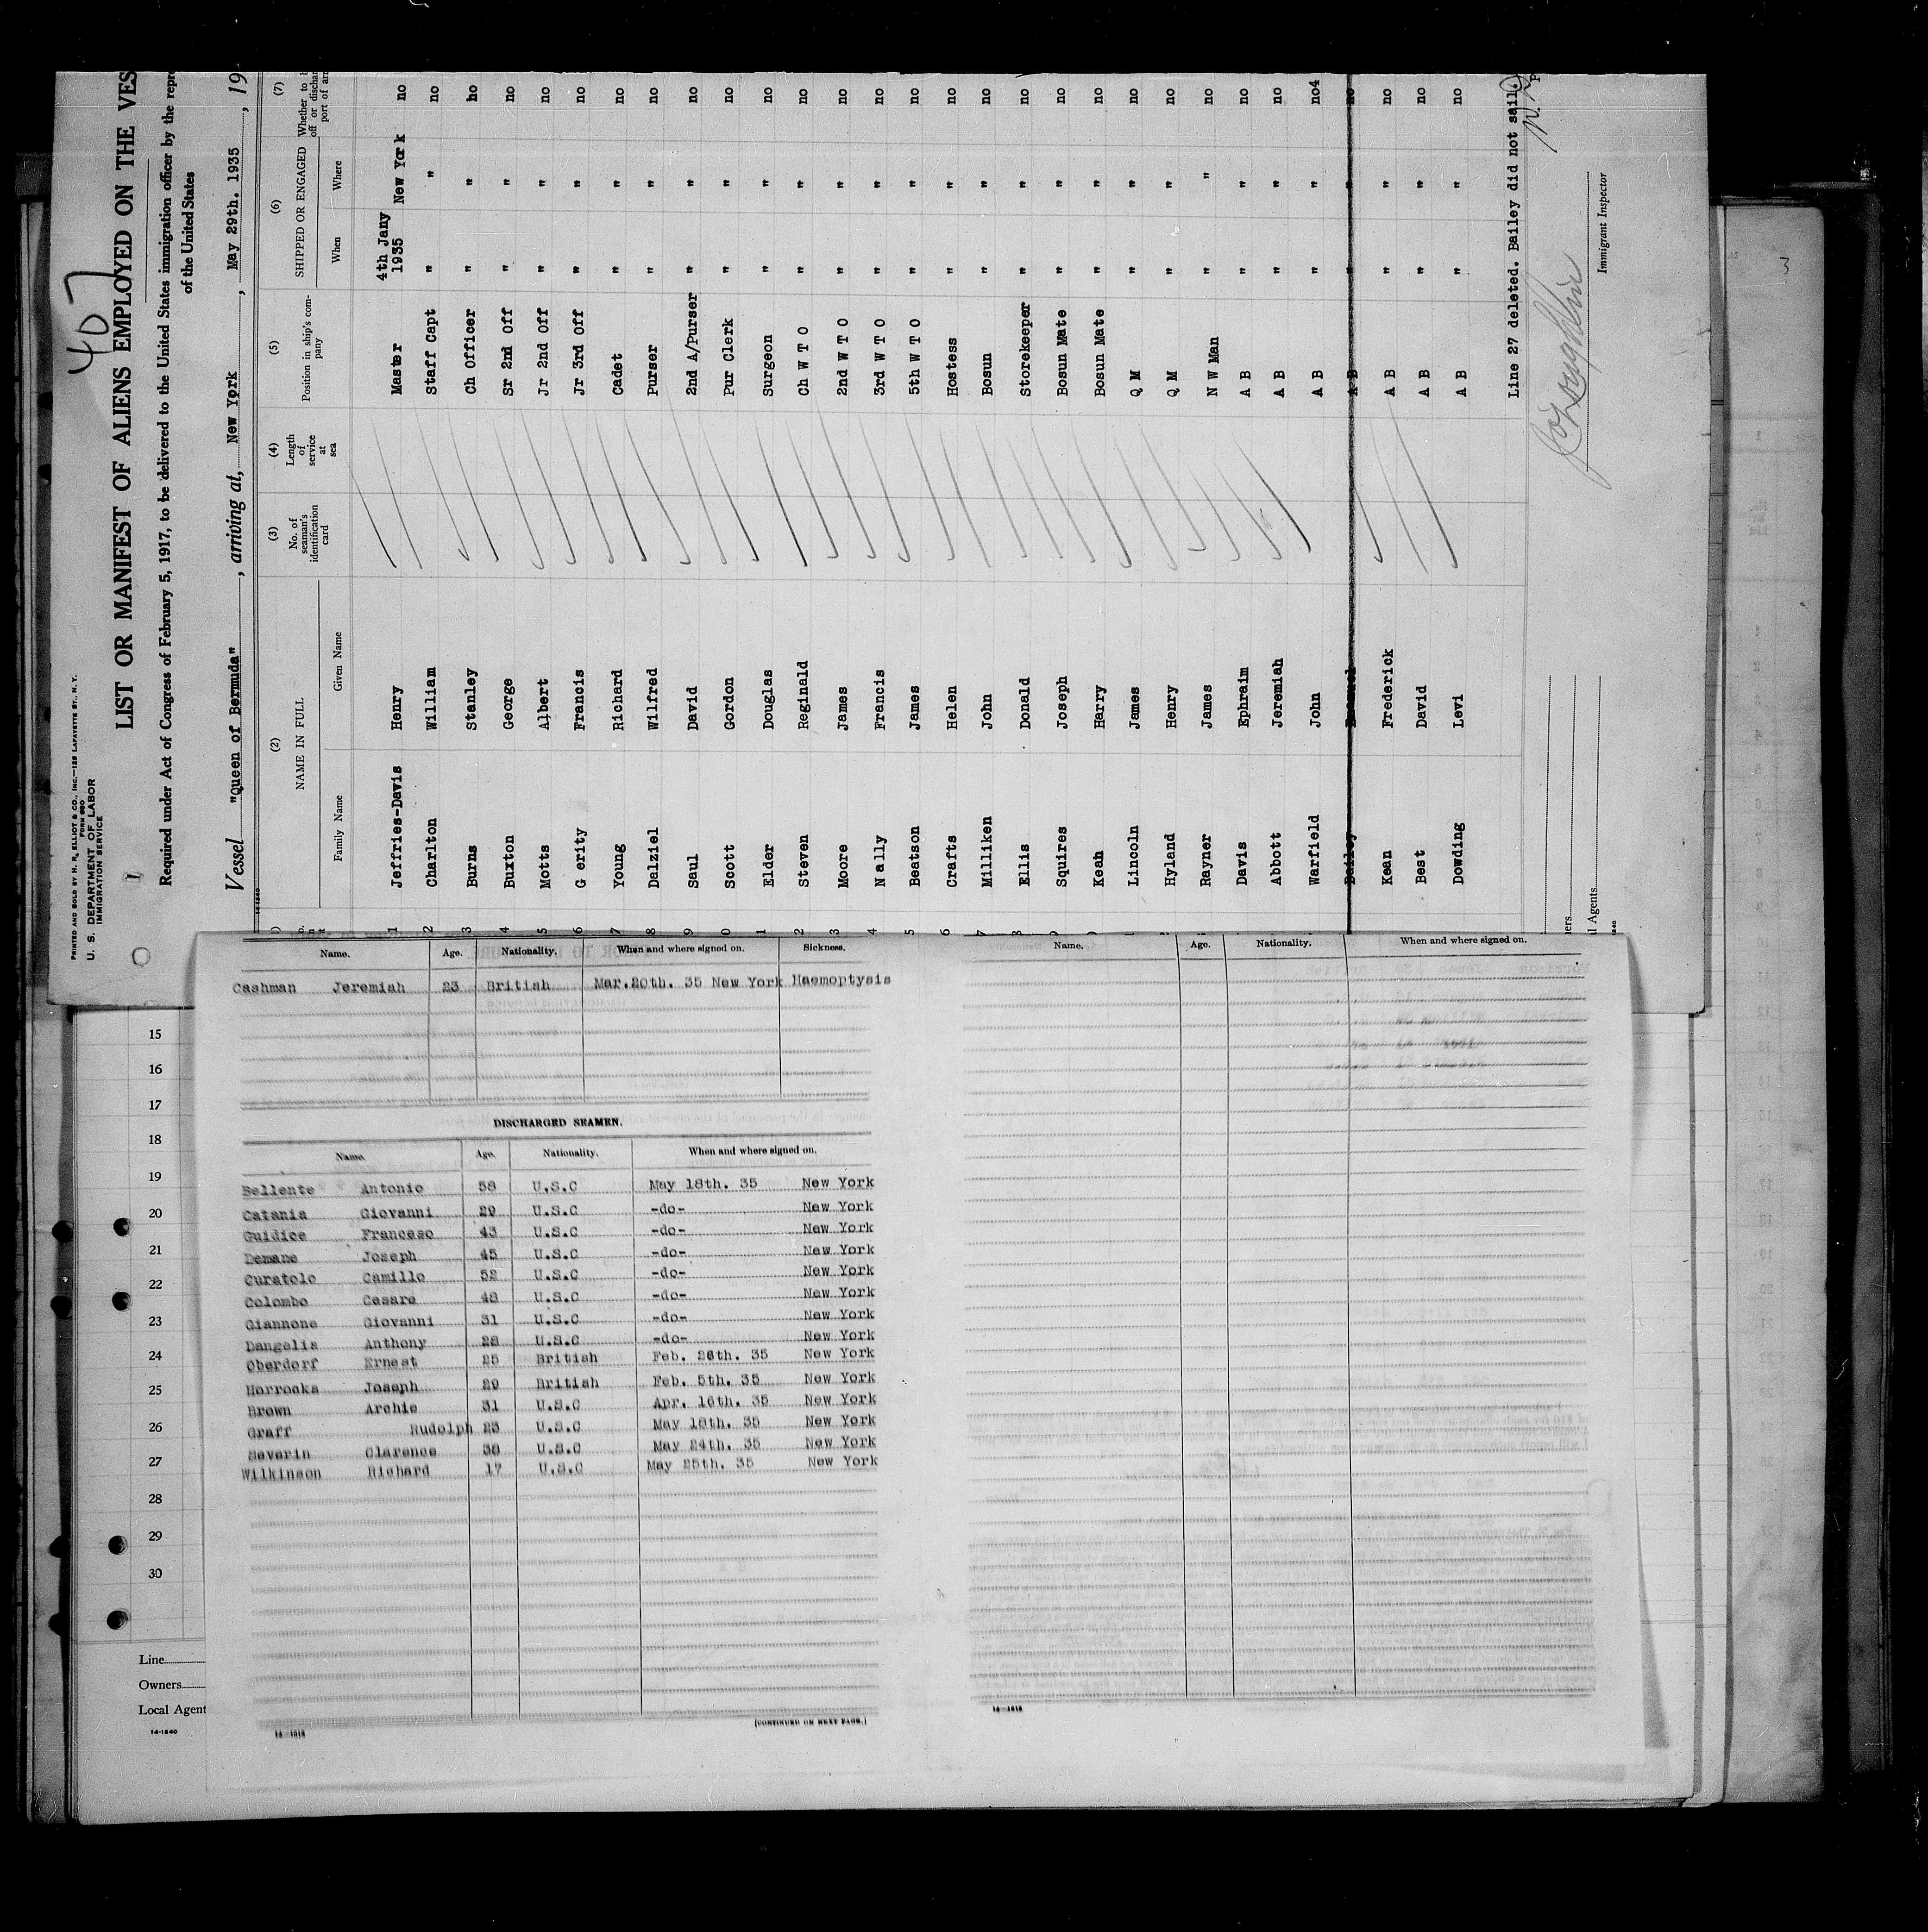 407
PRINTED AND SOLD BY H. R. ELLIOT & CO., INC.—129 LAFAYETTE ST., N. Y.
FORM 680
U. S. DEPARTMENT OF LABOR
IMMIGRATION SERVICE
LIST OR MANIFEST OF ALIENS EMPLOYED ON THE VES
Required under Act of Congress of February 5, 1917, to be delivered to the United States immigration officer by the repre
of the United States
Vessel "Queen of Bermuda", arriving at, New York, May 29th. 1935, 19
14-1240
(2) (3) (4) (5) (6) (7)
NAME IN FULL
Family Name Given Name
No. of seaman's identification card
Length of service at sea
Position in ship's company
SHIPPED OR ENGAGED
When Where
Whether to b
off or dischar
port of arr
1 Jeffries-Davis Henry Master 4th Jany 1935 New York no
2 Charlton William Staff Capt " " no
3 Burns Stanley Ch Officer " " no
4 Buxton George Sr 2nd Off " " no
5 Motts Albert Jr 2nd Off " " no
6 G erity Francis Jr 3rd Off " " no
7 Young Richard Cadet " " no
8 Dalziel Wilfred Purser " " no
9 Saul David 2nd A/Purser " " no
0 Scott Gordon Pur Clerk " " no
1 Elder Douglas Surgeon " " no
2 Steven Reginald Ch W T O " " no
3 Moore James 2nd W T O " " no
4 Nally Francis 3rd W T O " " no
5 Beatson James 5th W T O " " no
6 Crafts Helen Hostess " " no
7 Milliken John Bosun " " no
8 Ellis Donald Storekeeper " " no
9 Squires Joseph Bosun Mate " " no
0 Keah Harry Bosun Mate " " no
Lincoln James Q M " " no
Hyland Henry Q M " " no
Rayner James N W Man " " no
Davis Ephraim A B " " no
Abbott Jeremiah A B " " no
Warfield John A B " " no4
Bailey Emanuel A B " " no
Kean Frederick A B " " no
Best David A B " " no
Dowding Levi A B " " no
Line 27 deleted. Bailey did not sail.
Immigrant Inspector
ers
l Agents
Name. Age. Nationality. When and where signed on. Sickness.
Cashman Jeremiah 23 British Mar.20th. 35 New York Haemoptysis
DISCHARGED SEAMEN.
Name. Age. Nationality. When and where signed on.
Bellente Antonio 58 U.S.C May 18th. 35 New York
Catania Giovanni 29 U.S.C -do- New York
Guidice Franceso 43 U.S.C -do- New York
Demane Joseph 45 U.S.C -do- New York
Curatolo Camillo 52 U.S.C -do- New York
Colombo Cesare 48 U.S.C -do- New York
Giannone Giovanni 31 U.S.C -do- New York
Dangelis Anthony 28 U.S.C -do- New York
Oberdorf Ernest 25 British Feb. 26th. 35 New York
Horrocks Joseph 29 British Feb. 5th. 35 New York
Brown Archie 31 U.S.C Apr. 16th. 35 New York
Graff Rudolph 23 U.S.C May 18th. 35 New York
Severin Clarence 38 U.S.C May 24th. 35 New York
Wilkinson Richard 17 U.S.C May 25th. 35 New York
14—1218
(CONTINUED ON NEXT PAGE.)
Name. Age. Nationality. When and where signed on.
14—1218
15
16
17
18
19
20
21
22
23
24
25
26
27
28
29
30
Line
Owners
Local Agent
14-1240
3